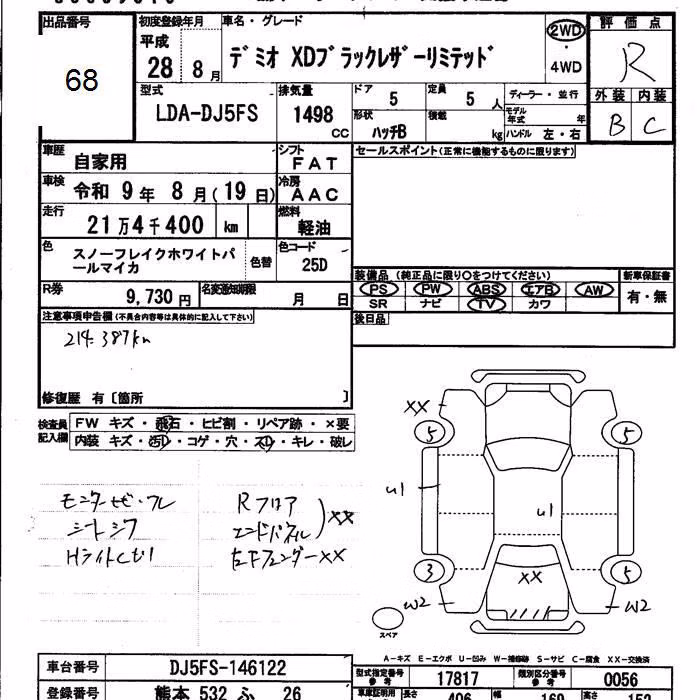 出品番号 初度登録年月 車名・グレード 評価点
68 平成 28年 8月 デミオ XDブラックレザーリミテッド 2WD ・ 4WD R
型式 排気量 ドア 定員 ディーラー・並行 外装 内装
LDA-DJ5FS 1498 CC 5 5人 モデル年式 年 B C
形状 積載
ハッチB kg ハンドル 左・右
車歴 自家用 シフト FAT セールスポイント(正常に機能するものに限ります)
車検 令和 9年 8月(19日) 冷房 AAC
走行 21万4千400 km 燃料 軽油
色 スノーフレイクホワイトパールマイカ 色替 色コード 25D
装備品(純正品に限り○をつけてください) 新車保証書
PS PW ABS エアB AW 有・無
SR ナビ TV カワ
R券 9,730円 名変通知期限 月 日
後日品
注意事項申告欄(不具合内容等は具体的に記入して下さい)
214.387km
修復歴 有〔箇所 〕
検査員記入欄 FW キズ・飛石・ヒビ割・リペア跡・×要
内装 キズ・汚レ・コゲ・穴・スレ・キレ・破レ
Rフロア
シートシワ エンドパネル XX
左Fフェンダー XX
XX
5 5
U1 U1
3 5
XX
W2 W2
スペア
A-キズ E-エクボ U-凹み W-補修跡 S-サビ C-腐食 XX-交換済
車台番号 DJ5FS-146122 型式指定番号 参考 17817 類別区分番号 参考 0056
登録番号 熊本 532 ふ 26 長さ 406 幅 169 高さ